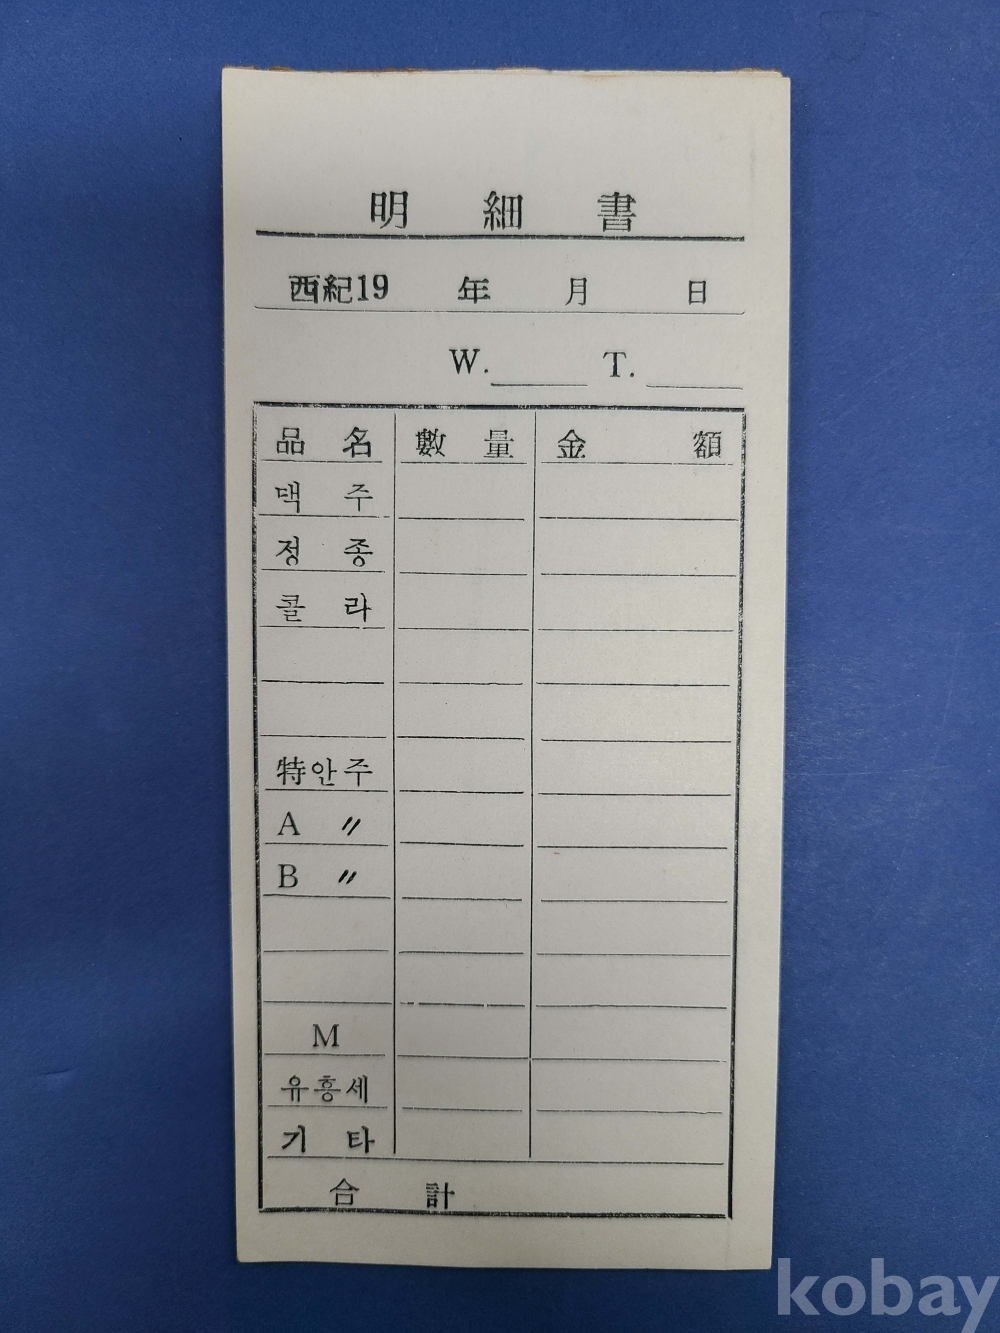 明細書
西紀19 年 月 日
W. T.
品名 數量 金額
맥주
정종
콜라
特안주
A 〃
B 〃
M
유흥세
기타
合計
kobay